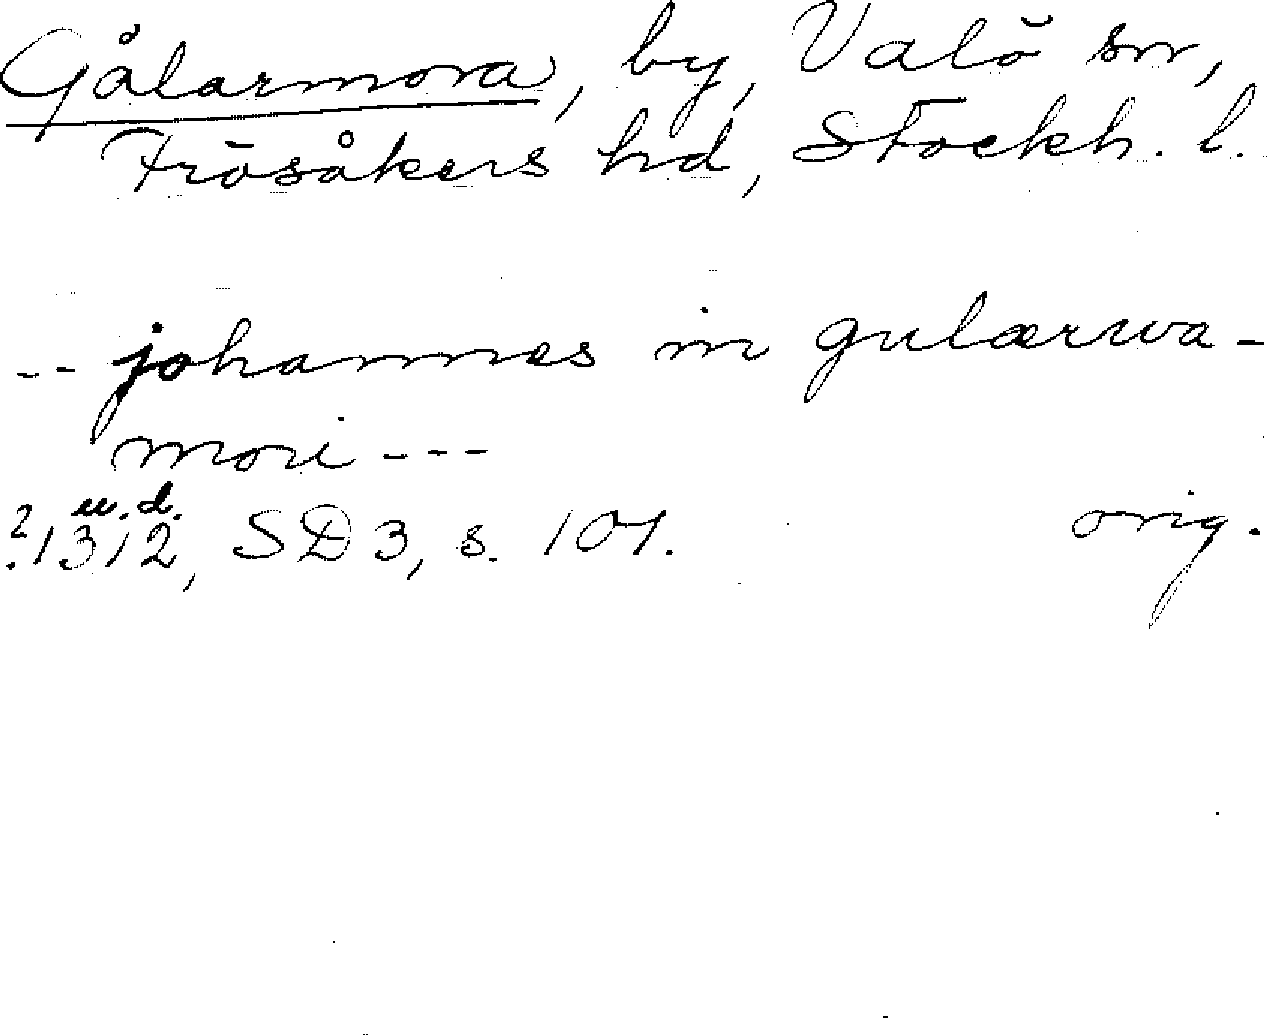 Gålarmora, by, Valö sn,
Frösåkers hd, Stockh. l.
-- johannes in gulærwa-
mori ---
u.d.
?1312, SD 3, s. 101. orig.